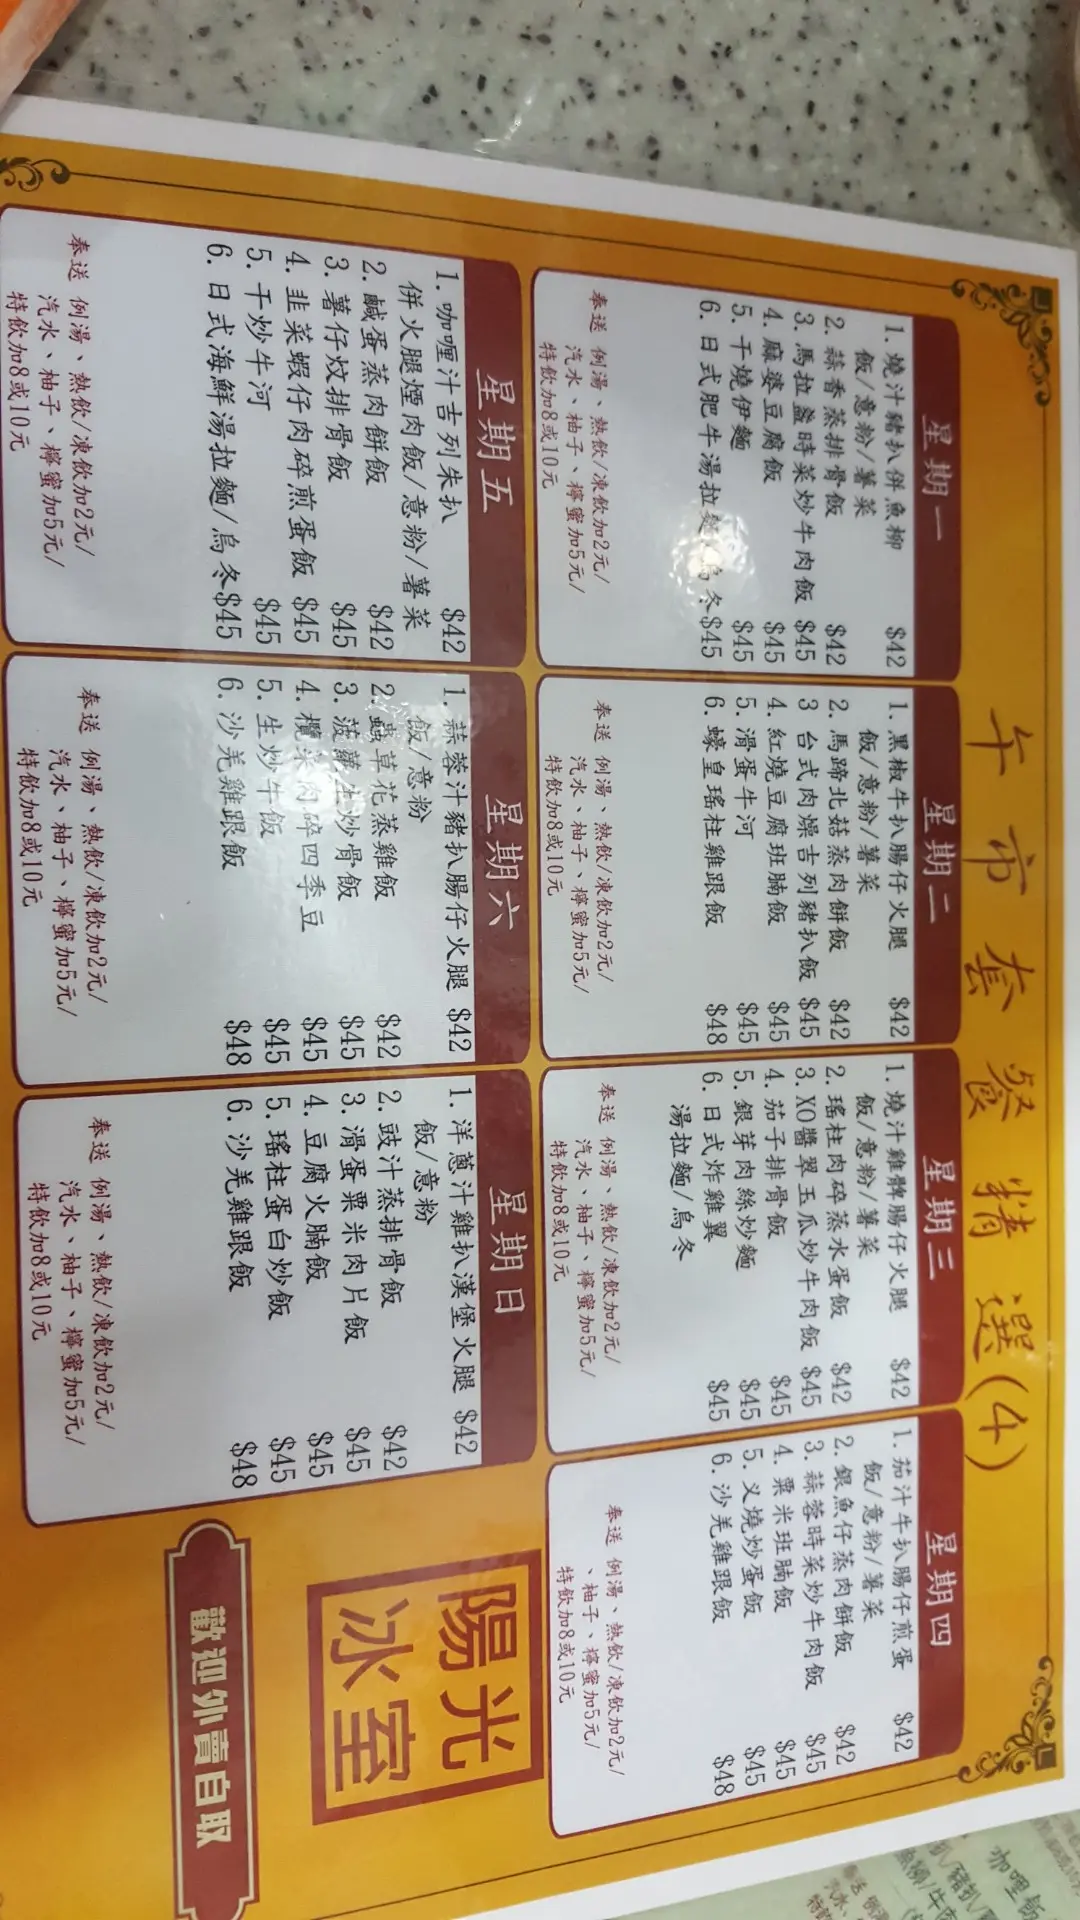 午市套餐精選(4)
星期一
1. 燒汁豬扒併魚柳 $42
飯/意粉/薯菜
2. 蒜香蒸排骨飯 $42
3. 馬拉盞時菜炒牛肉飯 $45
4. 麻婆豆腐飯 $45
5. 干燒伊麵 $45
6. 日式肥牛湯拉麵/烏冬$45
奉送 例湯、熱飲/凍飲加2元/
汽水、柚子、檸蜜加5元/
特飲加8或10元
星期二
1. 黑椒牛扒腸仔火腿 $42
飯/意粉/薯菜
2. 馬蹄北菇蒸肉餅飯 $42
3 台式肉燥吉列豬扒飯 $45
4. 紅燒豆腐班腩飯 $45
5. 滑蛋牛河 $45
6. 蠔皇瑤柱雞跟飯 $48
奉送 例湯、熱飲/凍飲加2元/
汽水、柚子、檸蜜加5元/
特飲加8或10元
星期三
1. 燒汁雞髀腸仔火腿 $42
飯/意粉/薯菜
2. 瑤柱肉碎蒸水蛋飯 $42
3. XO醬翠玉瓜炒牛肉飯 $45
4. 茄子排骨飯 $45
5. 銀芽肉絲炒麵 $45
6. 日式炸雞翼 $45
湯拉麵/烏冬
奉送 例湯、熱飲/凍飲加2元/
汽水、柚子、檸蜜加5元/
特飲加8或10元
星期四
1. 茄汁牛扒腸仔煎蛋 $42
飯/意粉/薯菜
2. 銀魚仔蒸肉餅飯 $42
3. 蒜蓉時菜炒牛肉飯 $45
4. 粟米班腩飯 $45
5. 义燒炒蛋飯 $45
6. 沙羌雞跟飯 $48
奉送 例湯、熱飲/凍飲加2元/
、柚子、檸蜜加5元/
特飲加8或10元
星期五
1. 咖喱汁吉列朱扒 $42
併火腿煙肉飯/意粉/薯菜
2. 鹹蛋蒸肉餅飯 $42
3. 薯仔炆排骨飯 $45
4. 韭菜蝦仔肉碎煎蛋飯 $45
5. 干炒牛河 $45
6. 日式海鮮湯拉麵/烏冬$45
奉送 例湯、熱飲/凍飲加2元/
汽水、柚子、檸蜜加5元/
特飲加8或10元
星期六
1. 蒜蓉汁豬扒腸仔火腿 $42
飯/意粉
2. 蟲草花蒸雞飯 $42
3. 菠蘿生炒骨飯 $45
4. 欖菜肉碎四季豆 $45
5. 生炒牛飯 $45
6. 沙羌雞跟飯 $48
奉送 例湯、熱飲/凍飲加2元/
汽水、柚子、檸蜜加5元/
特飲加8或10元
星期日
1. 洋蔥汁雞扒漢堡火腿 $42
飯/意粉
2. 豉汁蒸排骨飯 $42
3. 滑蛋粟米肉片飯 $45
4. 豆腐火腩飯 $45
5. 瑤柱蛋白炒飯 $45
6. 沙羌雞跟飯 $48
奉送 例湯、熱飲/凍飲加2元/
汽水、柚子、檸蜜加5元/
特飲加8或10元
陽光
冰室
歡迎外賣自取
咖哩飯